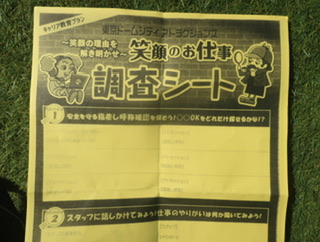 キャリア教育プラン
東京ドームシティアトラクションズ
～笑顔の理由を
解き明かせ～
笑顔のお仕事
調査シート
1 安全を守る指差し呼称確認を探そう！○○OKをどれだけ探せるかな!?
2 スタッフに話しかけてみよう！仕事のやりがいは何か聞いてみよう！